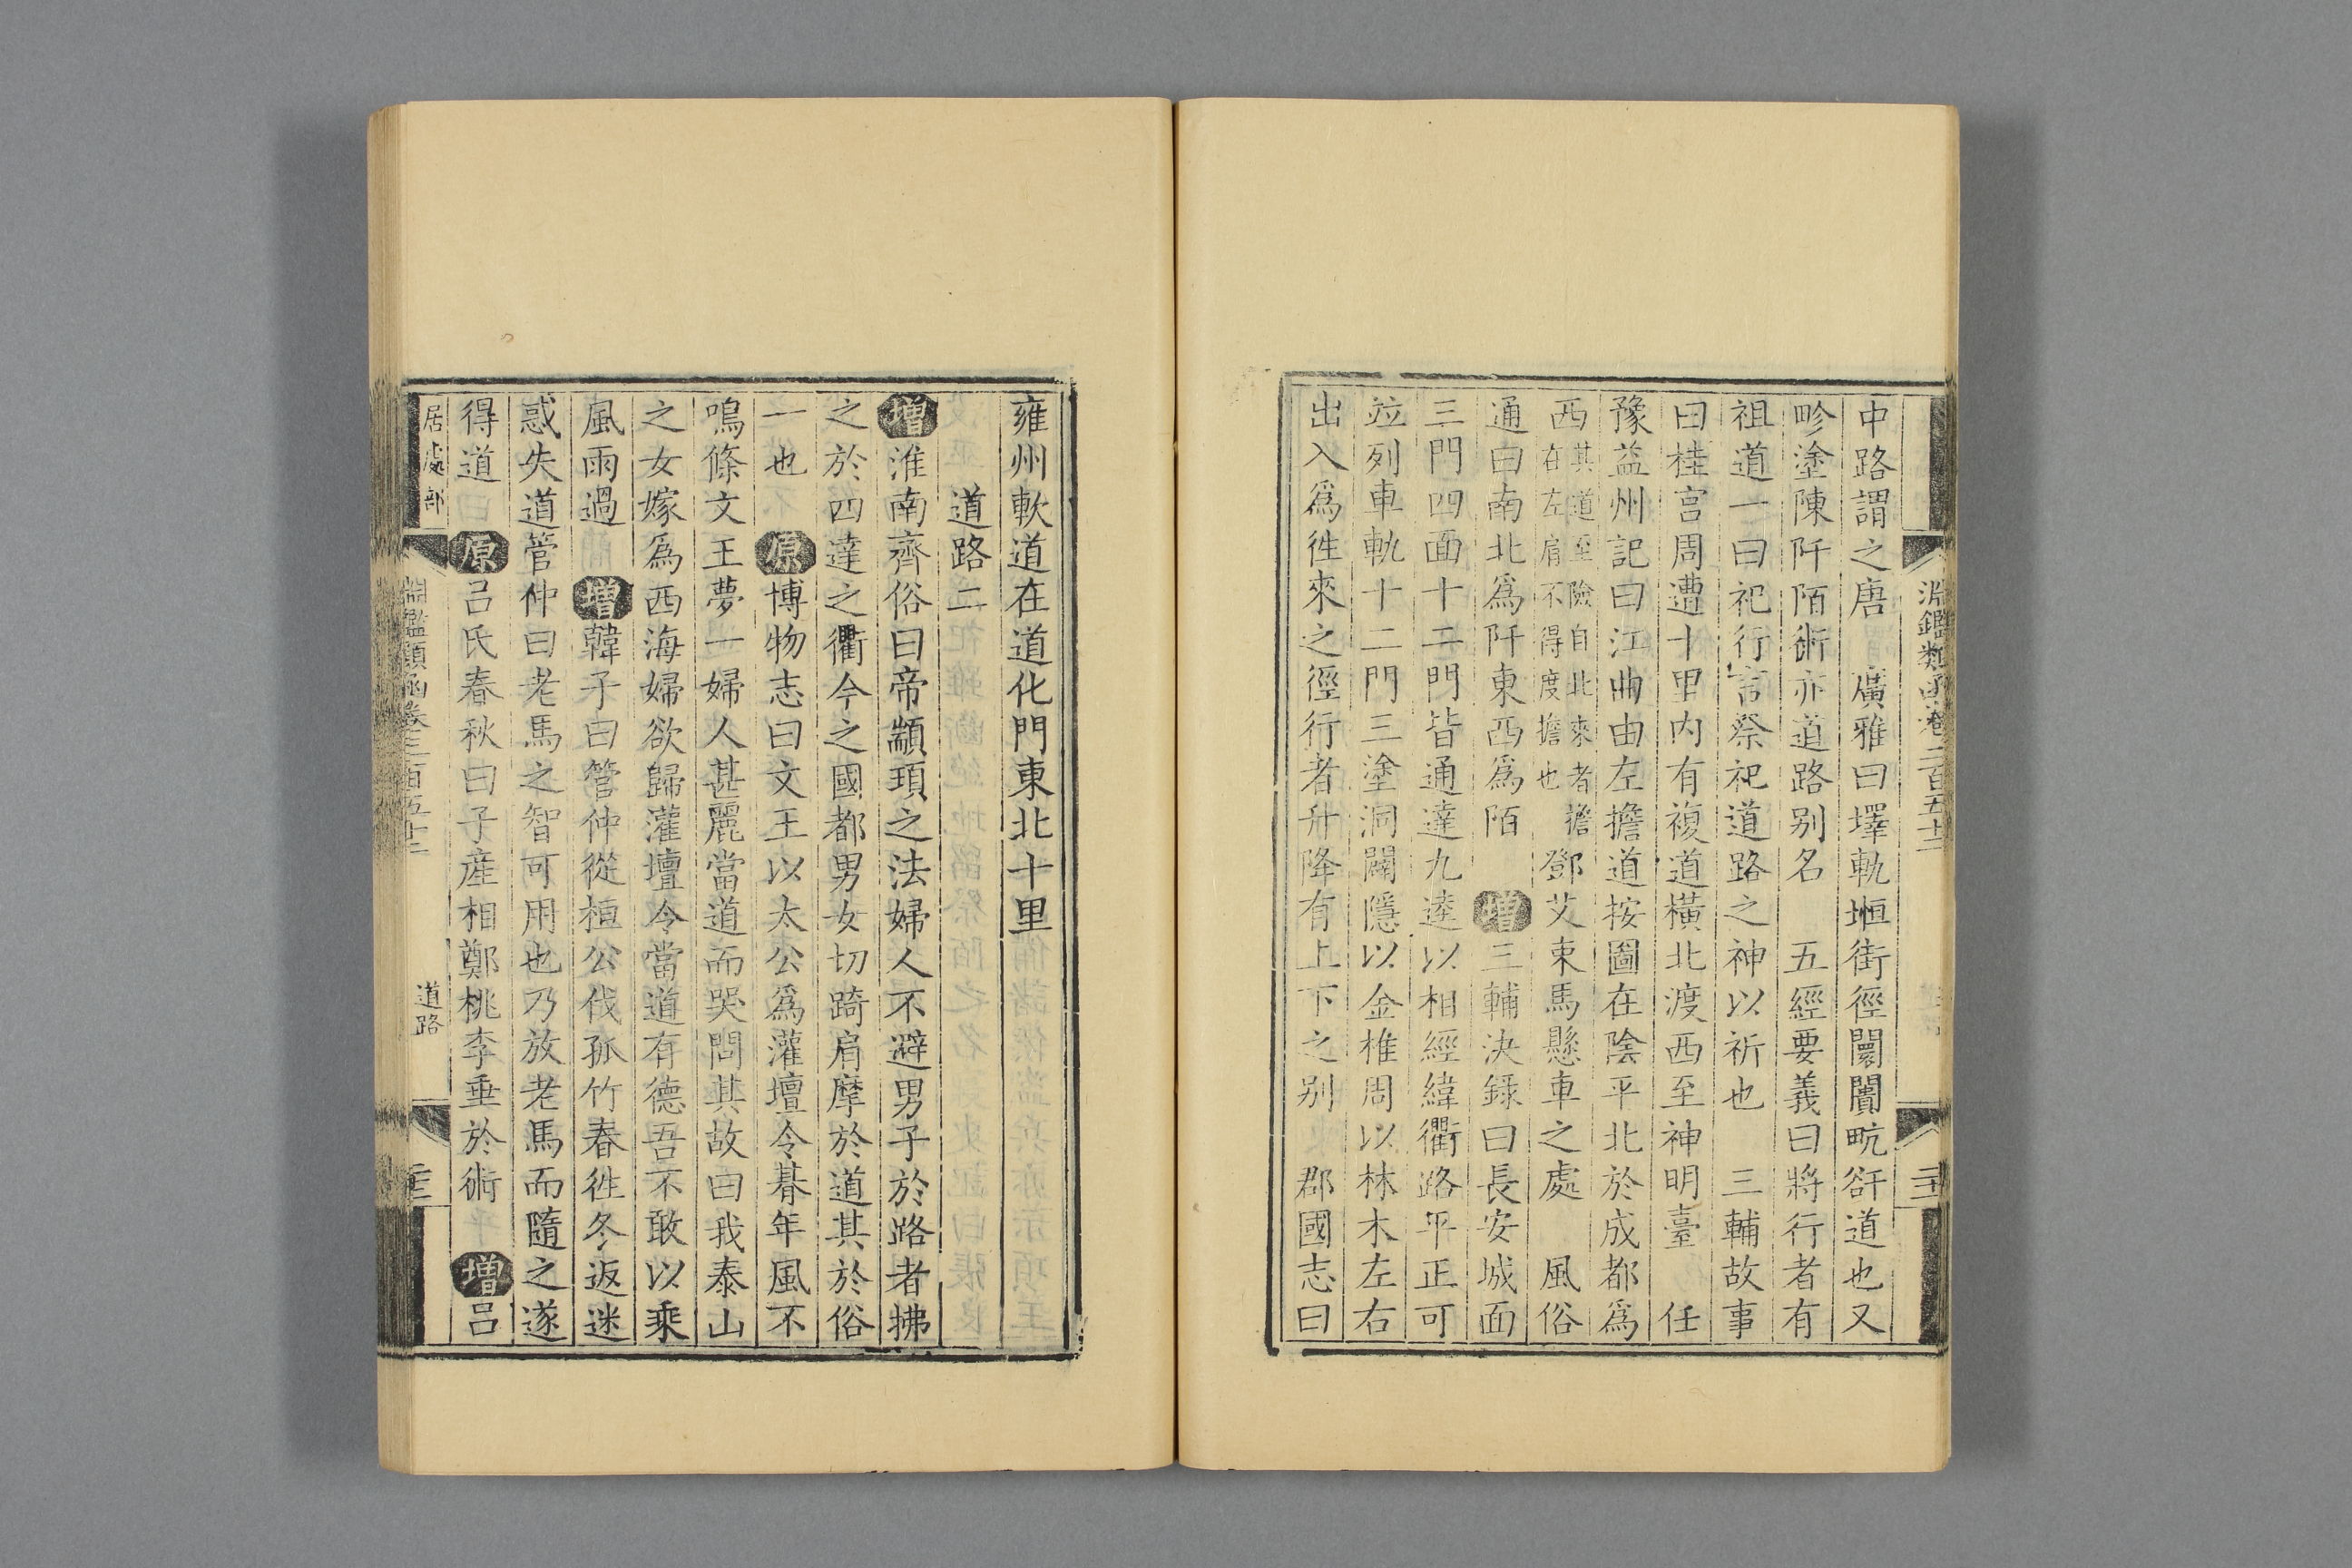 淵鑑類函卷三百五十二
中路謂之唐　廣雅曰墿軌堩街徑闤闠畡𧮰道也又
畛塗陳阡陌術亦道路别名　五經要義曰將行者有
祖道一曰祀行言祭祀道路之神以祈也　三輔故事
曰桂宫周遭十里内有複道橫北渡西至神明臺　任
豫益州記曰江曲由左擔道按圖在陰平北於成都爲
西其道至險自北來者擔在左肩不得度擔也鄧艾束馬懸車之處　風俗
通曰南北爲阡東西爲陌　增三輔決錄曰長安城面
三門四面十二門皆通達九逵以相經緯衢路平正可
竝列車軌十二門三塗洞闢隱以金椎周以林木左右
出入爲徃來之徑行者升降有上下之别　郡國志曰
雍州軟道在道化門東北十里
道路二
增淮南齊俗曰帝顓頊之法婦人不避男子於路者拂
之於四達之衢今之國都男女切踦肩摩於道其於俗
一也　原博物志曰文王以太公爲灌壇令朞年風不
鳴條文王夢一婦人甚麗當道而哭問其故曰我泰山
之女嫁爲西海婦欲歸灌壇令當道有德吾不敢以乘
風雨過　增韓子曰管仲從桓公伐孤竹春徃冬返迷
惑失道管仲曰老馬之智可用也乃放老馬而隨之遂
得道　原吕氏春秋曰子產相鄭桃李垂於術　增吕
居處部
淵鑑類函卷三百五十二
道路